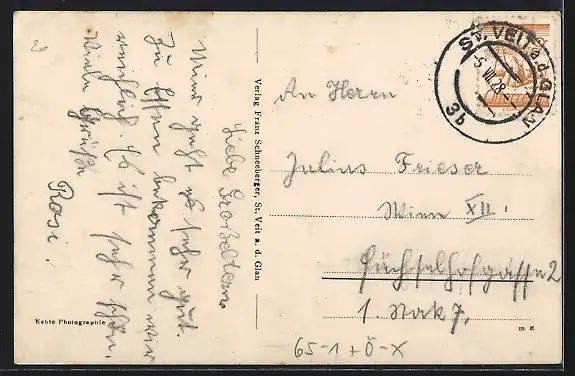 20
Liebe Großeltern
Mir geht es sehr gut.
Zu Essen bekommen wir
reichlich. Es ist sehr schön.
Viele Grüße
Rosi.
Verlag Franz Schneeberger, St. Veit a. d. Glan
Echte Photographie
ST. VEIT a.d. GLAN
5 VII 28
3b
An Herrn
Julius Frieser
Wien XII.
Füchselhofgasse 2
1. Stock 7.
m K
65-1+Ö-X